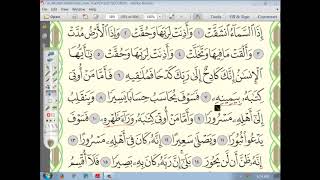 إِذَا السَّمَاءُ انشَقَّتْ ١ وَأَذِنَتْ لِرَبِّهَا وَحُقَّتْ ٢ وَإِذَا الْأَرْضُ مُدَّتْ
٣ وَأَلْقَتْ مَا فِيهَا وَتَخَلَّتْ ٤ وَأَذِنَتْ لِرَبِّهَا وَحُقَّتْ ٥ يَا أَيُّهَا
الْإِنسَانُ إِنَّكَ كَادِحٌ إِلَى رَبِّكَ كَدْحًا فَمُلَاقِيهِ ٦ فَأَمَّا مَنْ أُوتِيَ
كِتَابَهُ بِيَمِينِهِ ٧ فَسَوْفَ يُحَاسَبُ حِسَابًا يَسِيرًا ٨ وَيَنقَلِبُ
إِلَى أَهْلِهِ مَسْرُورًا ٩ وَأَمَّا مَنْ أُوتِيَ كِتَابَهُ وَرَاءَ ظَهْرِهِ ١٠ فَسَوْفَ
يَدْعُو ثُبُورًا ١١ وَيَصْلَى سَعِيرًا ١٢ إِنَّهُ كَانَ فِي أَهْلِهِ مَسْرُورًا ١٣
إِنَّهُ ظَنَّ أَن لَّن يَحُورَ ١٤ بَلَى إِنَّ رَبَّهُ كَانَ بِهِ بَصِيرًا ١٥ فَلَا أُقْسِمُ